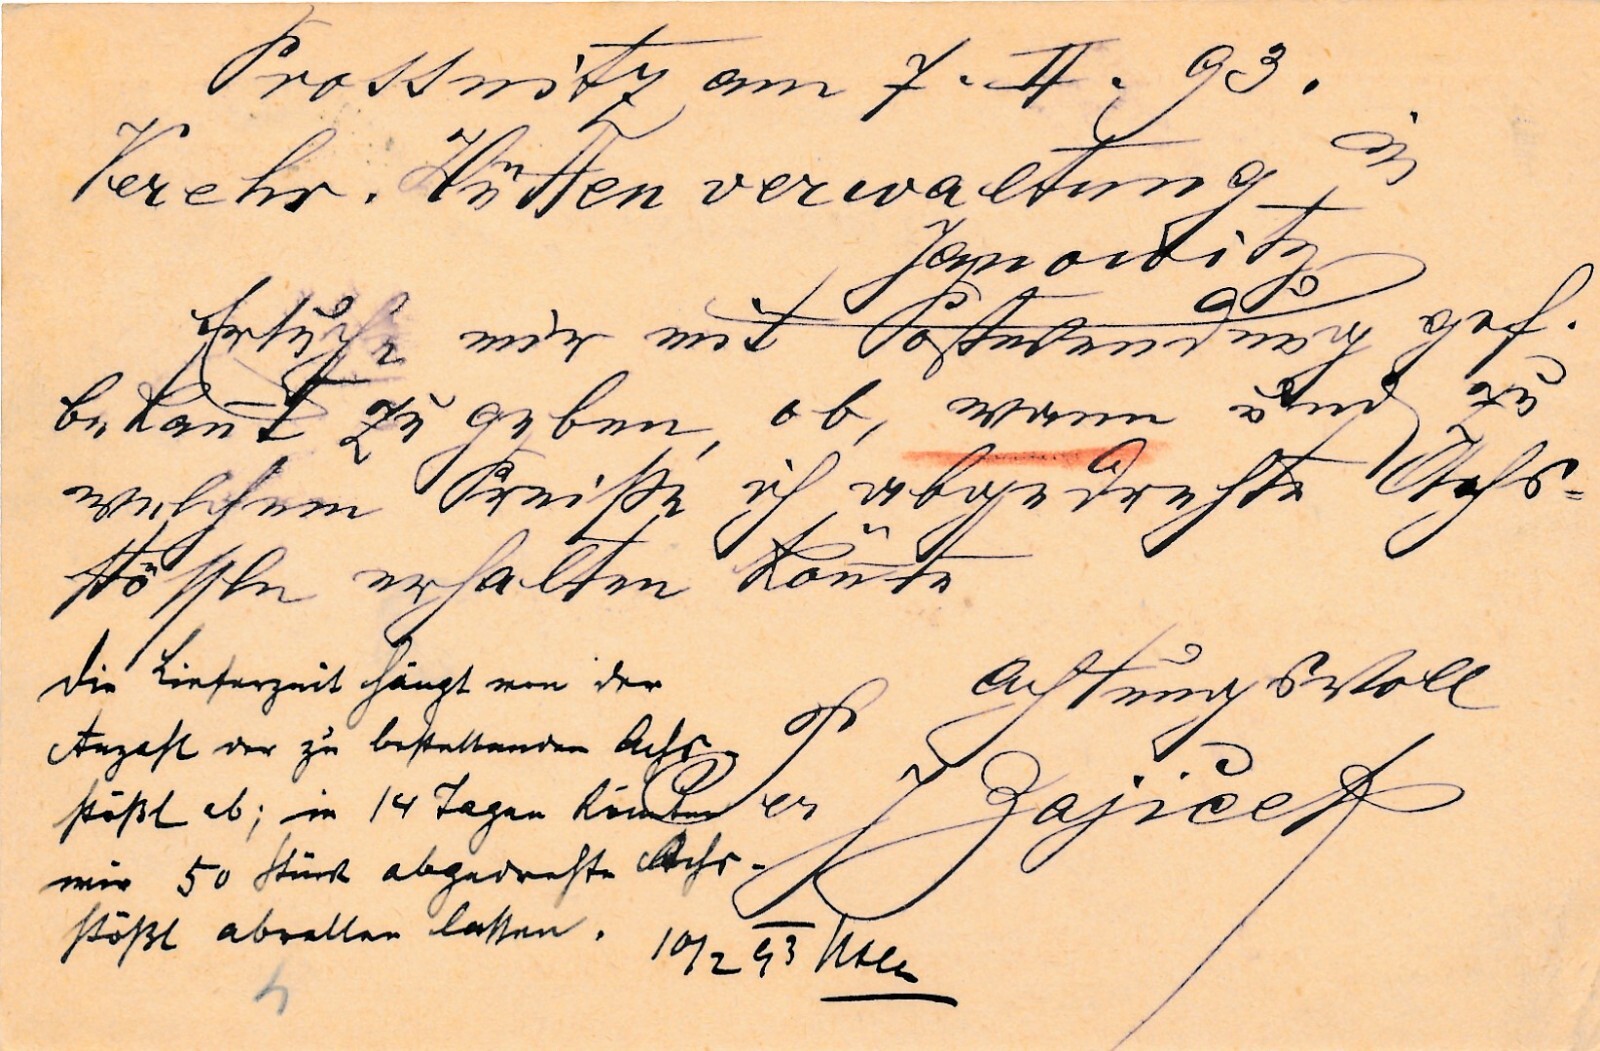 Prossnitz am 7. II. 93.
Verehr. Hüttenverwaltung in
Janowitz
Ersuche mir mit Postwendung gef.
bekant zu geben, ob, wann und zu
welchem Preiße ich abgedrehte Achs-
stössln erhalten könnte
Achtungsvoll
J Zajicek
Die Lieferzeit hängt von der
Anzahl der zu bestellenden Achs-
stößl ab; in 14 Tagen könnten
wir 50 Stück abgedrehte Achs-
stößl abrollen lassen.
10/2 93